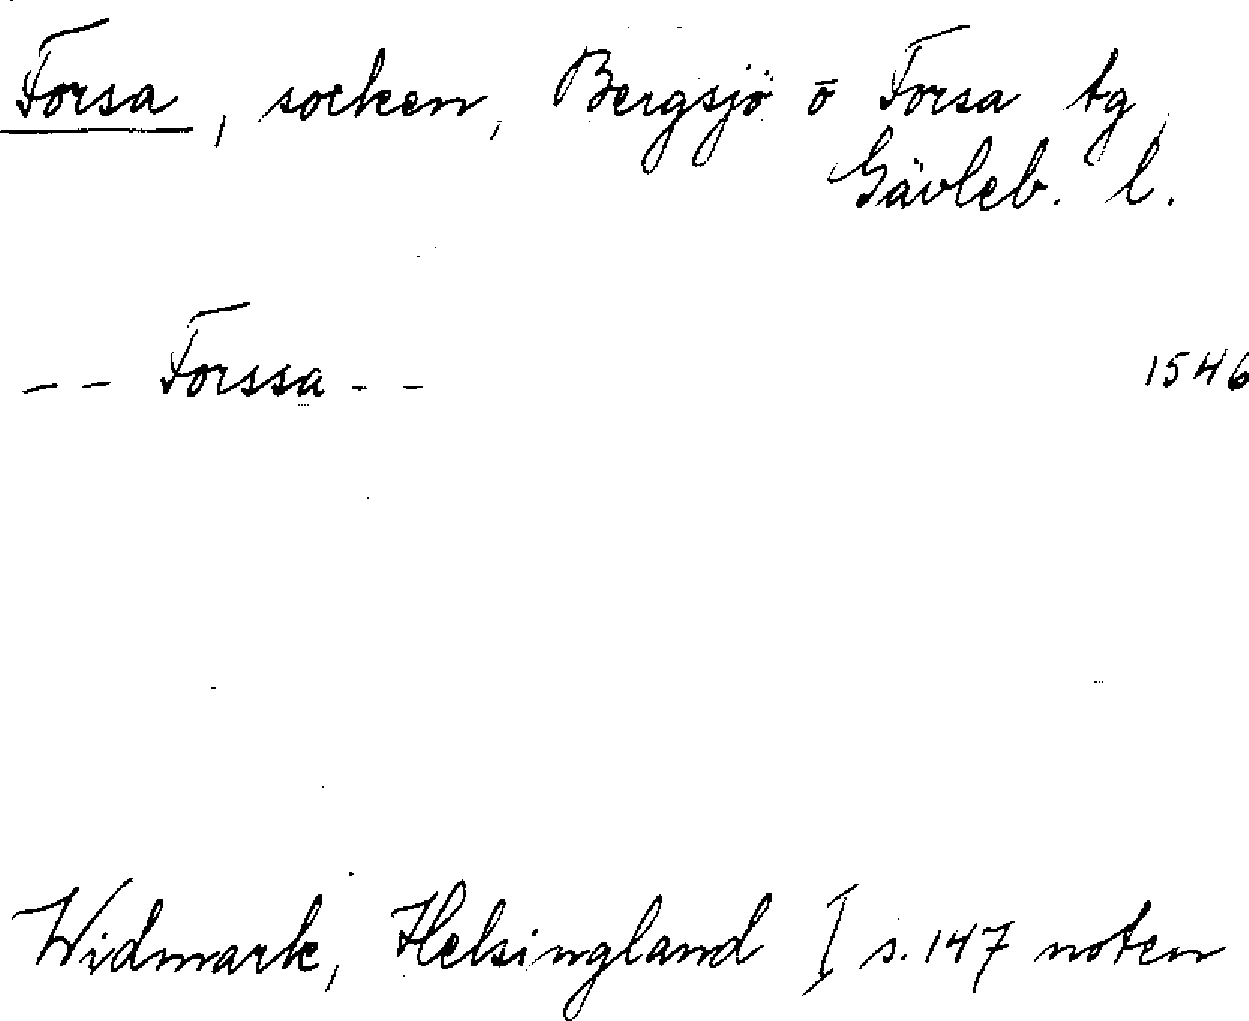 Forsa, socken, Bergsjö o Forsa tg
Gävleb. l.
-- Forssa -- 1546
Widmark, Helsingland I s. 147 noten